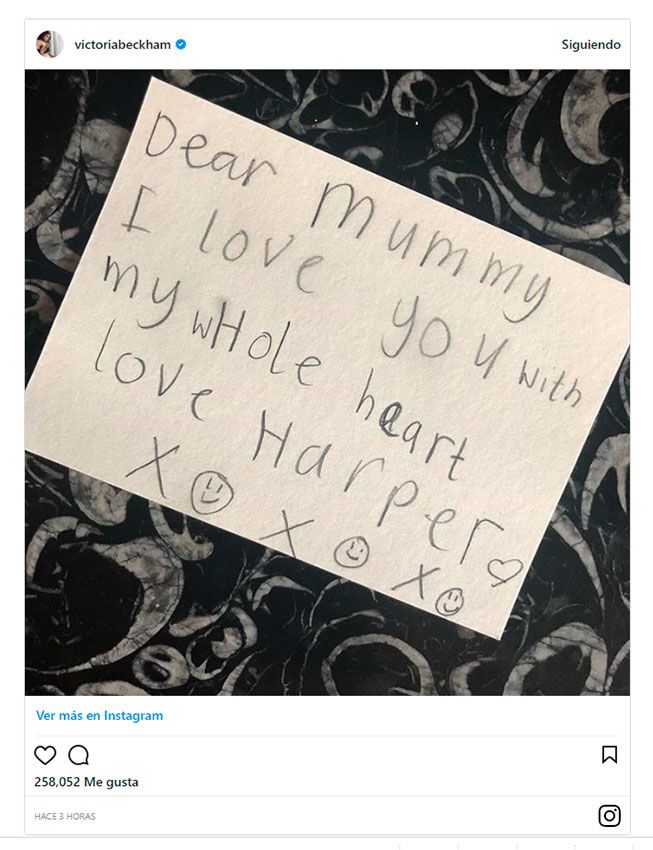 victoriabeckham
Siguiendo
Dear Mummy
I love you with
my wHole heart
love Harper
X X X
Ver más en Instagram
258,052 Me gusta
HACE 3 HORAS